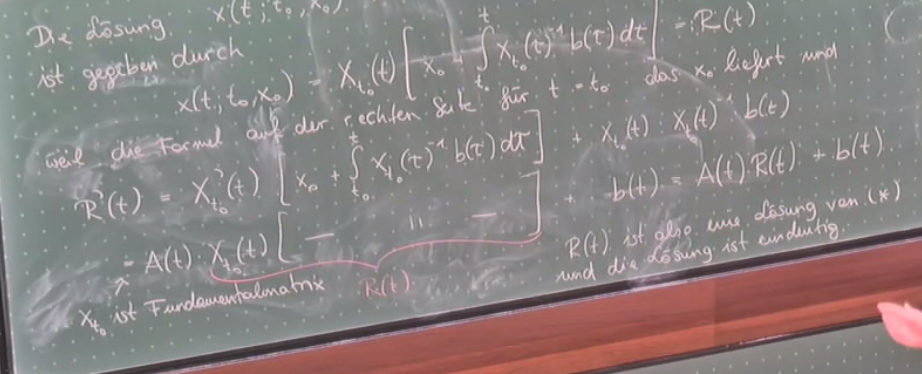 Die Lösung x(t; t₀, x₀)
ist gegeben durch
x(t; t₀, x₀) = X_{t₀}(t) [ x₀ + ∫_{t₀}^{t} X_{t₀}(τ)⁻¹ b(τ) dτ ] =: R(t)
weil die Formel auf der rechten Seite für t = t₀ das x₀ liefert und
R'(t) = X'_{t₀}(t) [ x₀ + ∫_{t₀}^{t} X_{t₀}(τ)⁻¹ b(τ) dτ ] + X_{t₀}(t) · X_{t₀}(t)⁻¹ b(t)
= A(t) · X_{t₀}(t) [ — " — ] + b(t) = A(t) · R(t) + b(t).
R(t)
X_{t₀} ist Fundamentalmatrix
R(t) ist also eine Lösung von (*)
und die Lösung ist eindeutig.